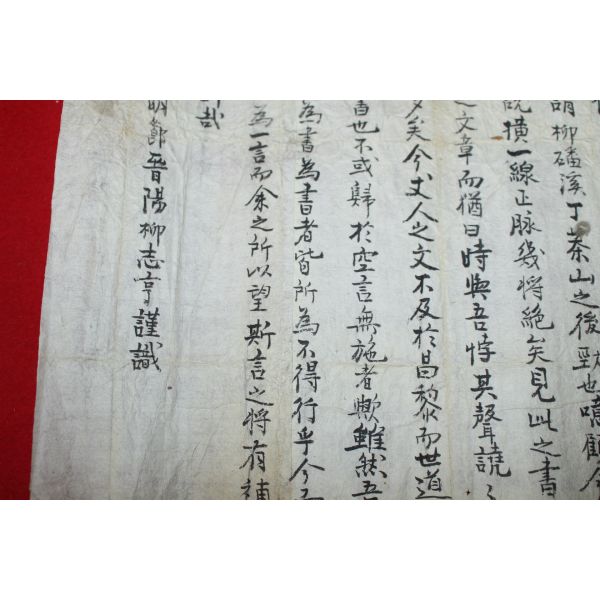 胡柳磻溪丁茶山之後勁也噫顧今
說橫一線正脉幾將絕矣見此之書
之文章而猶曰時與吾悖其聲譊〻
矣今丈人之文不及於昌黎而世道
者也不或歸於空言無施者歟雖然吾
為書為書者皆所為不得行乎今而
為一言而余之所以望斯言之將有補
哉
明節晉陽柳志亨謹識